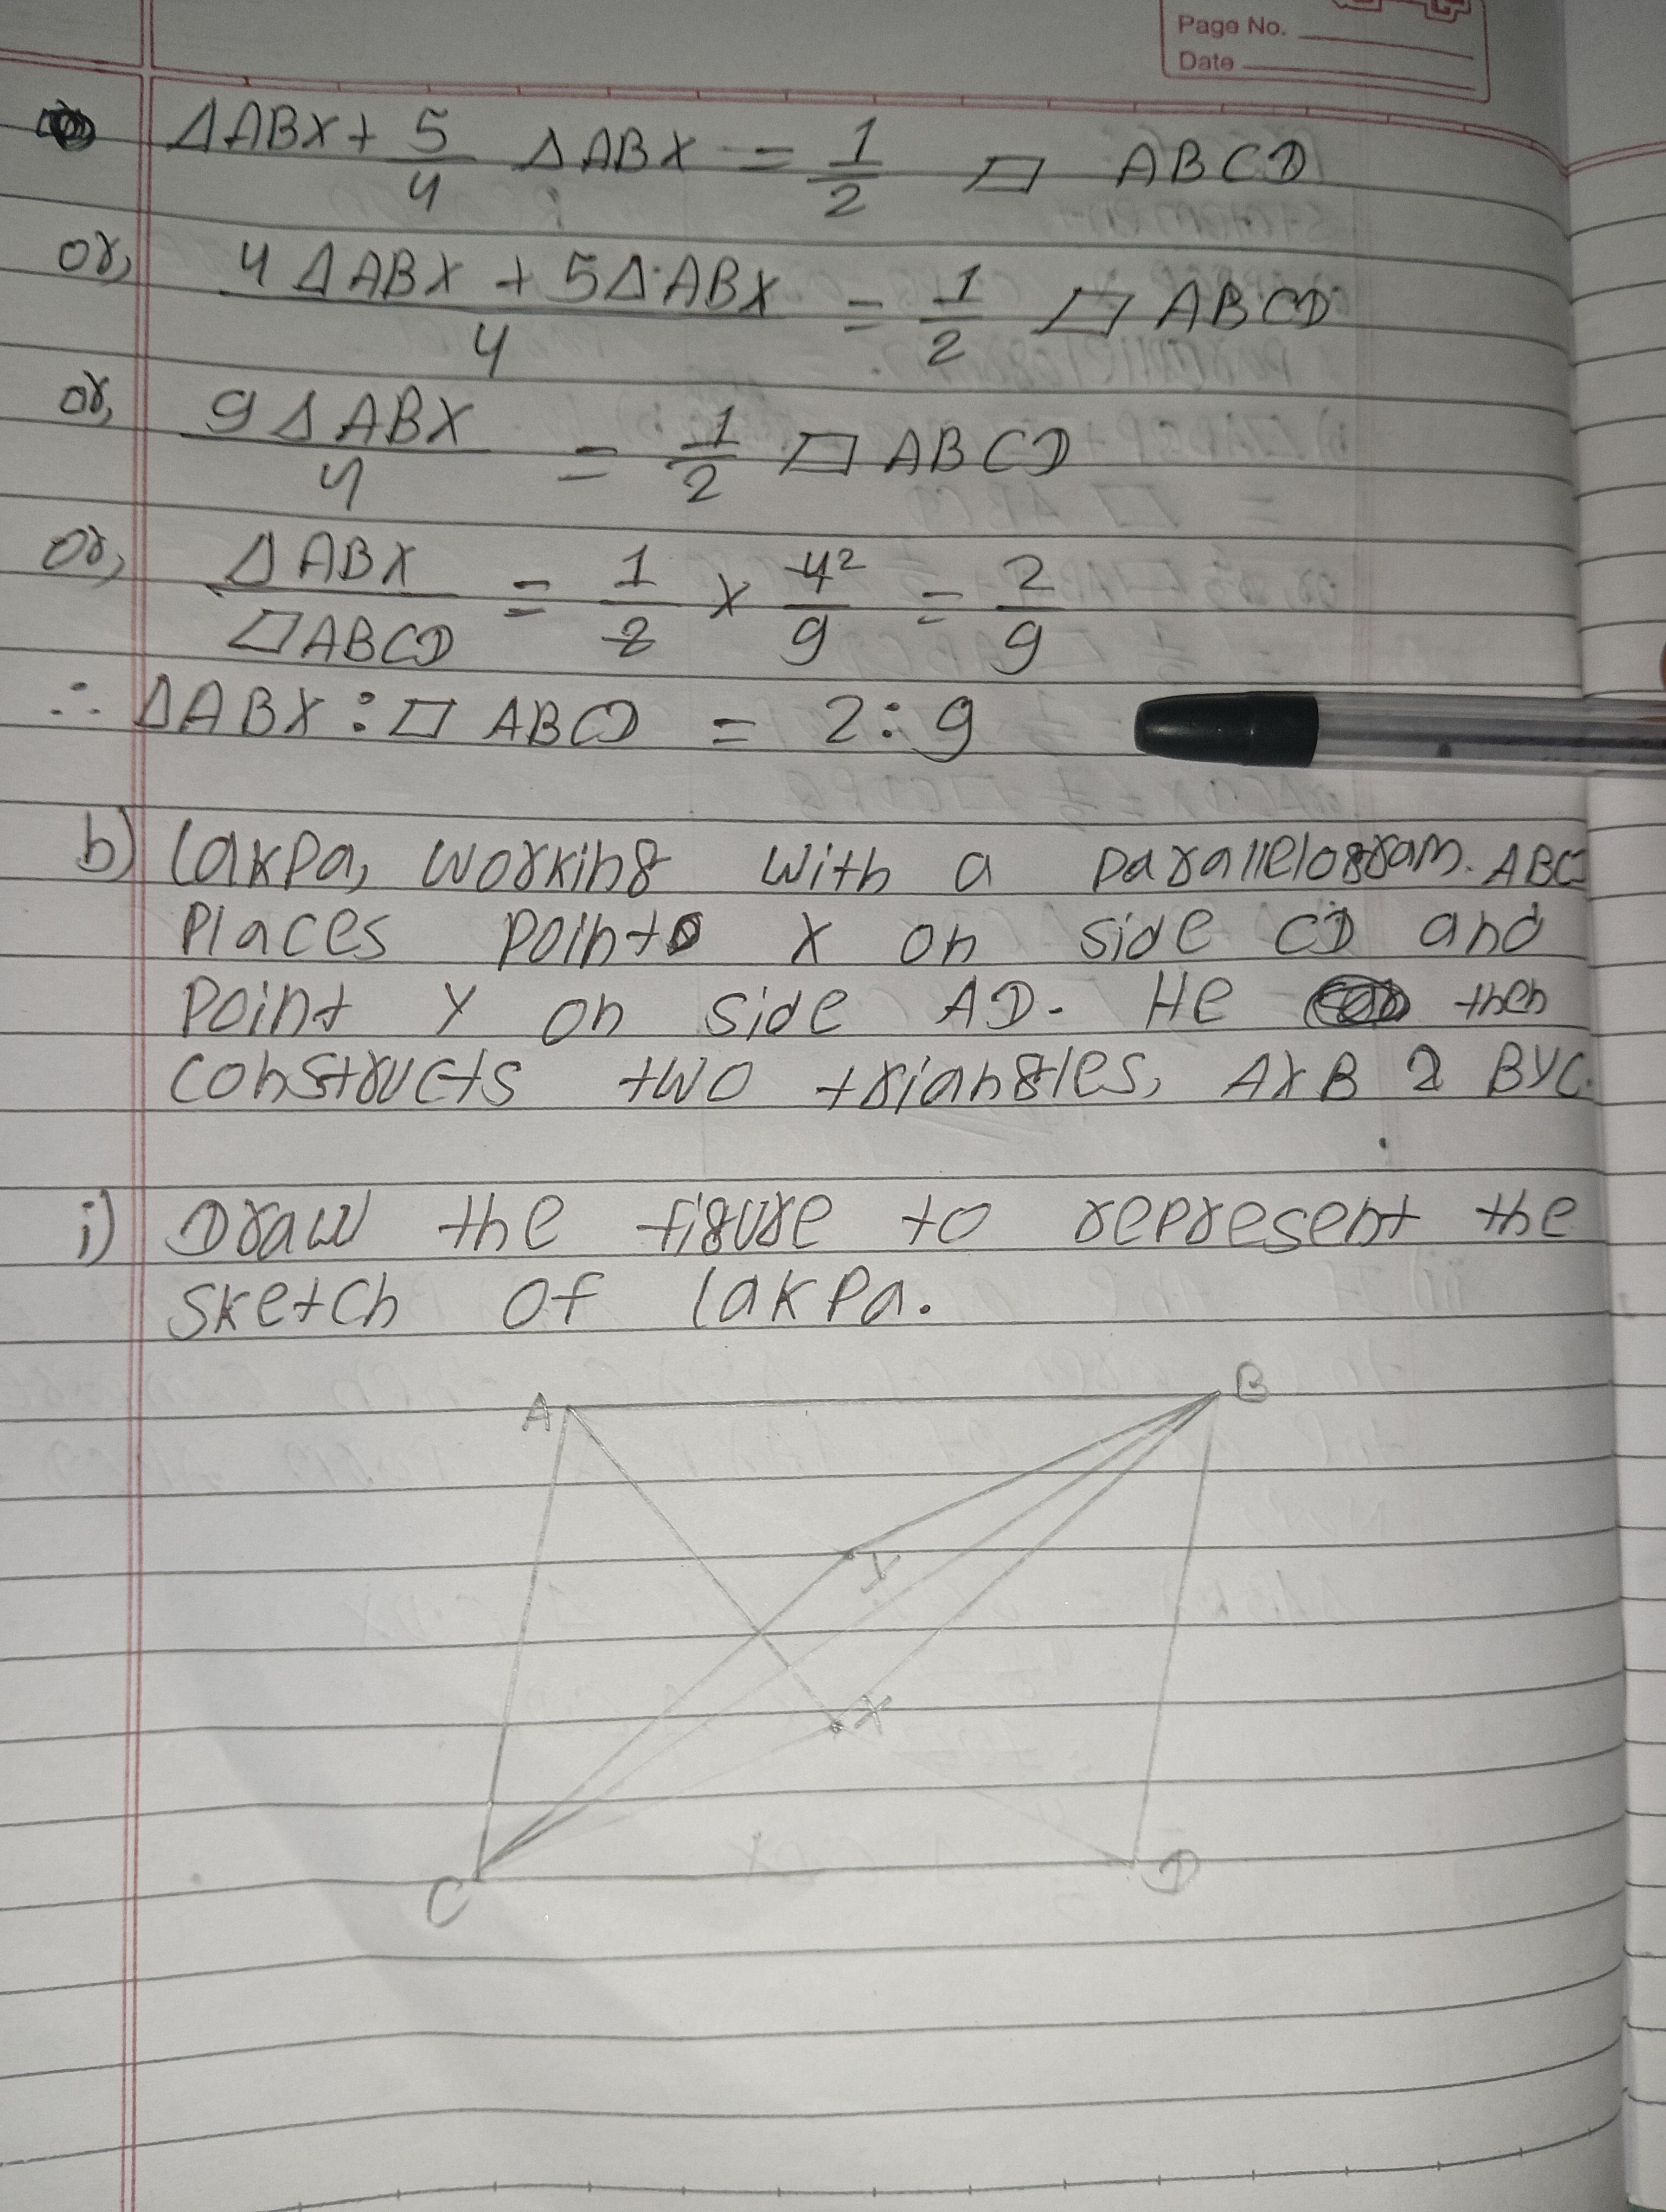 Page No.
Date
ΔABX + 5/4 ΔABX = 1/2 ▱ ABCD
or, (4ΔABX + 5ΔABX)/4 = 1/2 ▱ ABCD
or, 9ΔABX/4 = 1/2 ▱ ABCD
or, ΔABX/▱ABCD = 1/2 × 4²/9 = 2/9
∴ ΔABX : ▱ ABCD = 2:9
b) Lakpa, working with a parallelogram. ABCD
Places point X on side CD and
Point Y on side AD. He then
constructs two triangles, AXB & BYC.
i) Draw the figure to represent the
sketch of lakpa.
A B
Y
X
C D